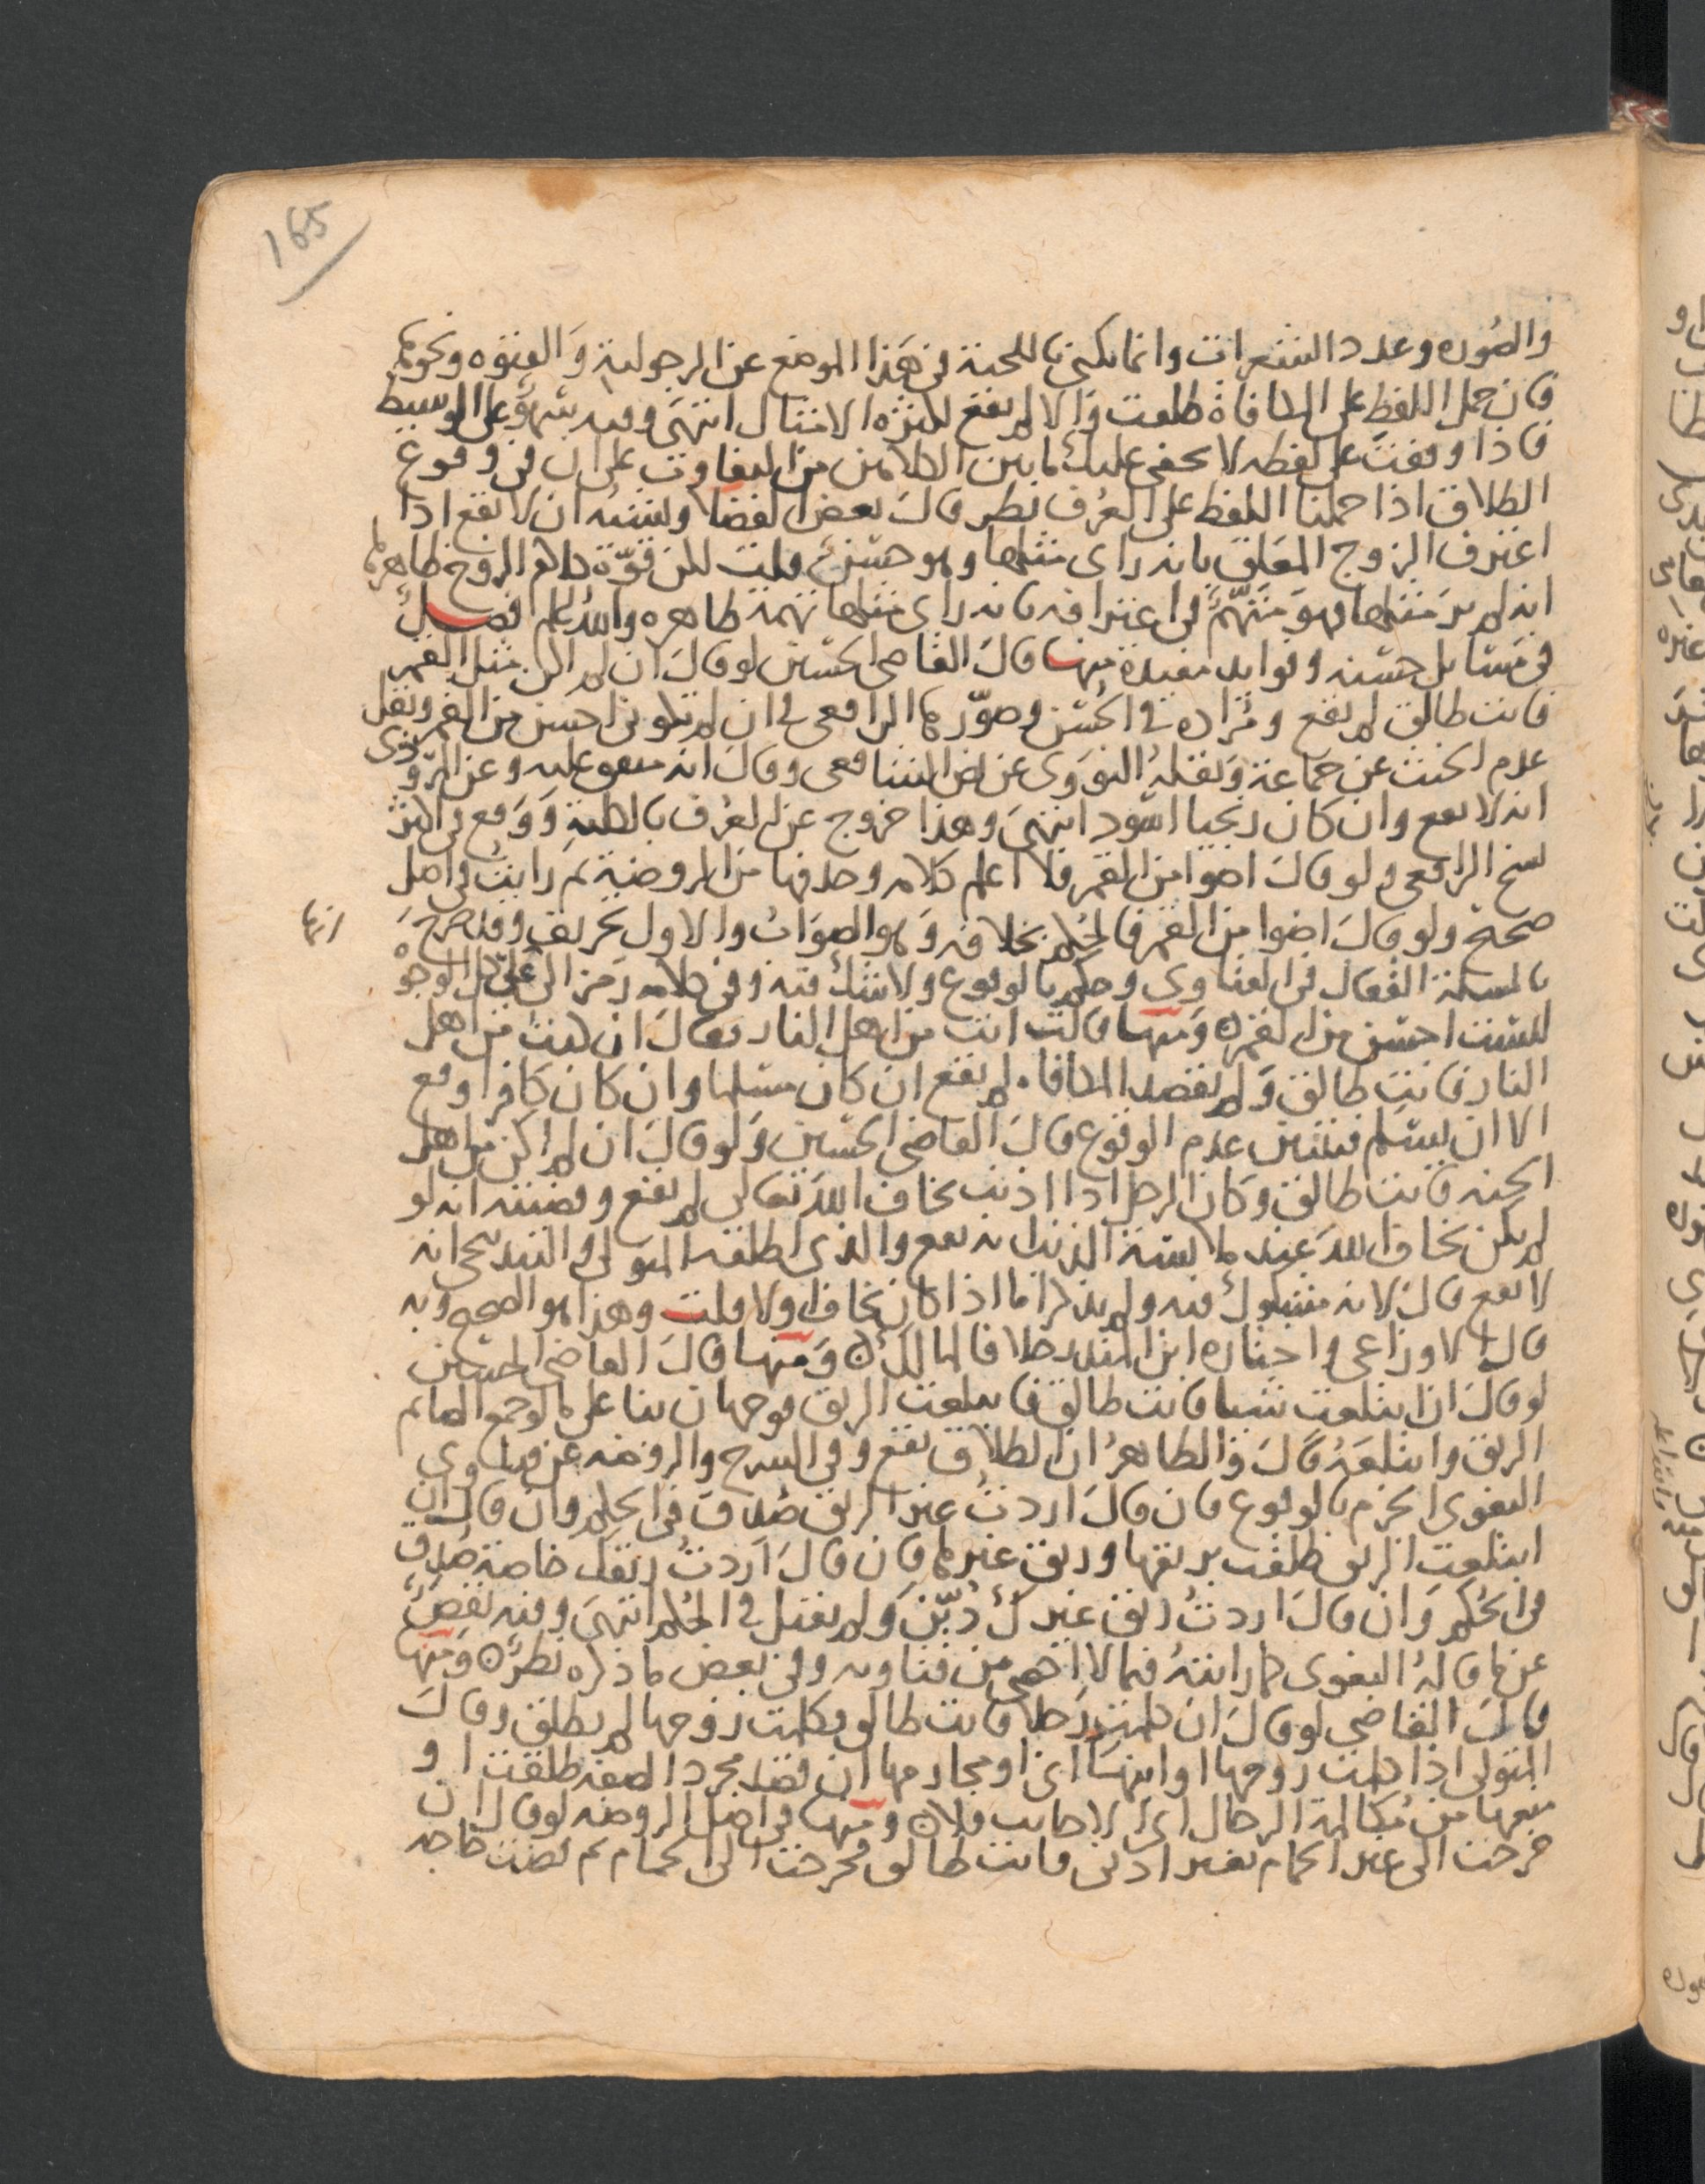 165
والصوره وعدد الشعرات وانما يكنى باللحية في هذا الموضع عن الرجولية والفتوه ونحوهما
فان حمل اللفظ على المكافاة طلقت والا لم يقع لكثرة الامثال انتهى وفيه سهو على الوسيط
فاذا وقفت على لفظه لا يخفى عليك ما بين الكلامين من التفاوت على ان في وقوع
الطلاق اذا حملنا اللفظ على العرف نظر قال بعض الفضلا ويشبه ان لا يقع اذا
اعترف الزوج المعلق بانه راى مثلها وهو حسن قلت لكن قوة كلام الزوج ظاهر في
انه لم ير مثلها فهو متهم في اعترافه بانه راى مثلها تهمة ظاهره والله اعلم فصل
في مسائل حسنه وفوايد مفيدة منها قال القاضي الحسين لو قال ان لم اكن مثل القمر
فانت طالق لم يقع ومراده في الحسن وصورها الرافعي في ان لم تكوني احسن من القمر ونقل
عدم الحنث عن جماعة ونقله النووي عن نص الشافعي وقال انه متفق عليه وعن الروذي
انه لا يقع وان كان زنجيا اسود انتهى وهذا خروج عن العرف بالكلية ووقع في اكثر
نسخ الرافعي ولو قال اضوا من القمر فلا اعلم كلامه وحذفها من الروضة ثم رايت في اصل
صحيح ولو قال اضوا من القمر فالحكم بخلافه وهو الصواب والاول تحريف وقد صرح
بالمسلة القفال في الفتاوى وحكم بالوقوع ولا شك فيه وفي كلامه رمز الى على كل الوجوه
ليست احسن من القمر ومنها قالت انت من اهل النار فقال ان كنت من اهل
النار فانت طالق ولم يقصد المكافاه لم يقع ان كان مسلما وان كان كافرا وقع
الا ان يسلم فيتبين عدم الوقوع قال القاضي الحسين ولو قال ان لم اكن من اهل
الجنه فانت طالق وكان الرجل اذا اذنب يخاف الله تعالى لم يقع وقضيته انه لو
لم يكن يخاف الله عند ملابسة الذنب انه يقع والذي اطلقه المتولي والبندنيجي انه
لا يقع قال لانه مشكوك فيه ولم يذكرا ما اذا كان يخاف او لا قلت وهذا هو الصحيح وبه
قال الاوزاعي واختاره ابن المنذر خلافا لمالك ومنها قال القاضي الحسين
لو قال ان ابتلعت شيا فانت طالق فابتلعت الريق فوجهان بنا على ما لو جمع الصايم
الريق وابتلعه قال والظاهر ان الطلاق يقع وفي الشرح والروضه عن فتاوى
البغوي الجزم بالوقوع فان قال اردت غير الريق صدق في الحكم وان قال ان
ابتلعت الريق طلقت بريقها وريق غيرها فان قال اردت ريقك خاصة صدق
في الحكم وان قال اردت ريق غيرك دين ولم يقبل في الحكم انتهى وفيه نقص
عن ما قاله البغوي كما رايته فيما لا احصي من فتاويه وفي بعض ما ذكره نظر ومنها
قال القاضي لو قال ان كلمت رجلا فانت طالق فكلمت زوجها لم يطلق وقال
المتولي اذا كلمت زوجها او ابنها اي او محارمها ان قصد مجرد الصفه طلقت او
منعها من مكالمة الرجال اي الاجانب فلا ومنها في اصل الروضه لو قال ان
خرجت الى غير الحمام بغير اذني فانت طالق فخرجت الى الحمام ثم قضت حاجه